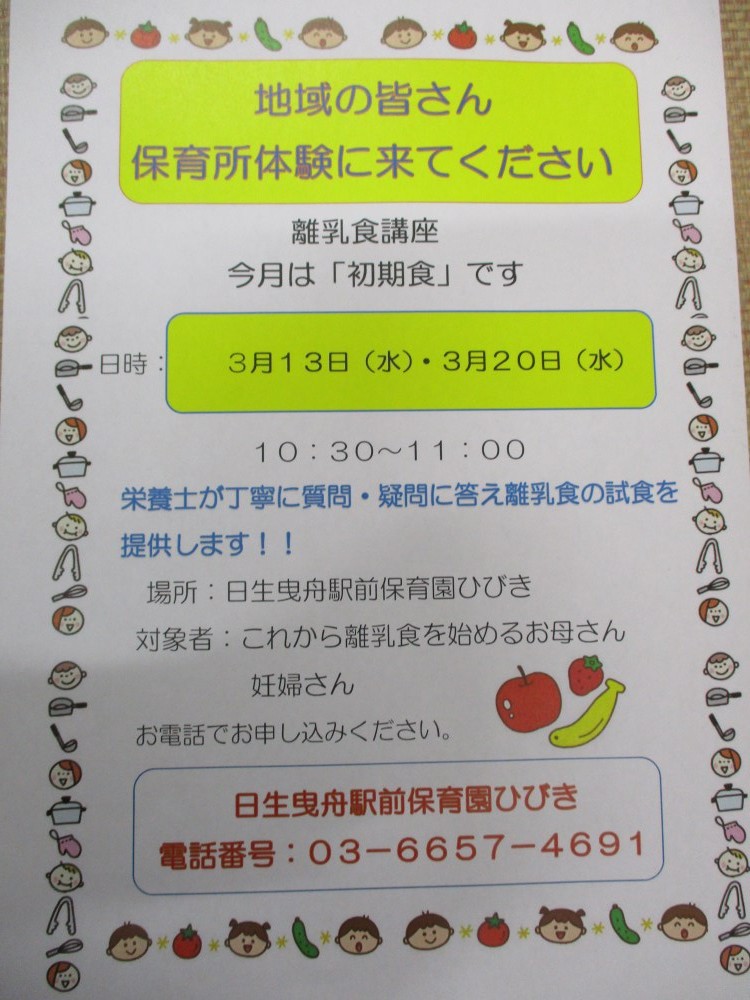 地域の皆さん
保育所体験に来てください
離乳食講座
今月は「初期食」です
日時： ３月１３日（水）・３月２０日（水）
１０：３０～１１：００
栄養士が丁寧に質問・疑問に答え離乳食の試食を
提供します！！
場所：日生曳舟駅前保育園ひびき
対象者：これから離乳食を始めるお母さん
妊婦さん
お電話でお申し込みください。
日生曳舟駅前保育園ひびき
電話番号：０３－６６５７－４６９１